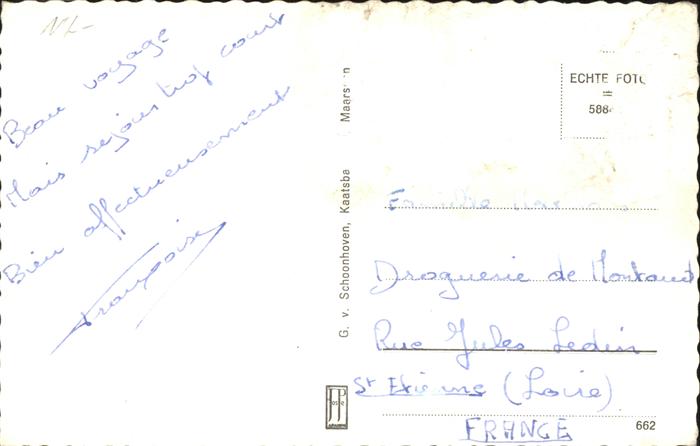 NL-
Beau voyage
Mais séjour trop court
Bien affectueusement
Françoise
G. v. Schoonhoven, Kaatsba Maarss n
ECHTE FOTO
=
588
Famille
Droguerie de Montaud
Rue Jules Ledin
St Etienne (Loire)
FRANCE
JP
662